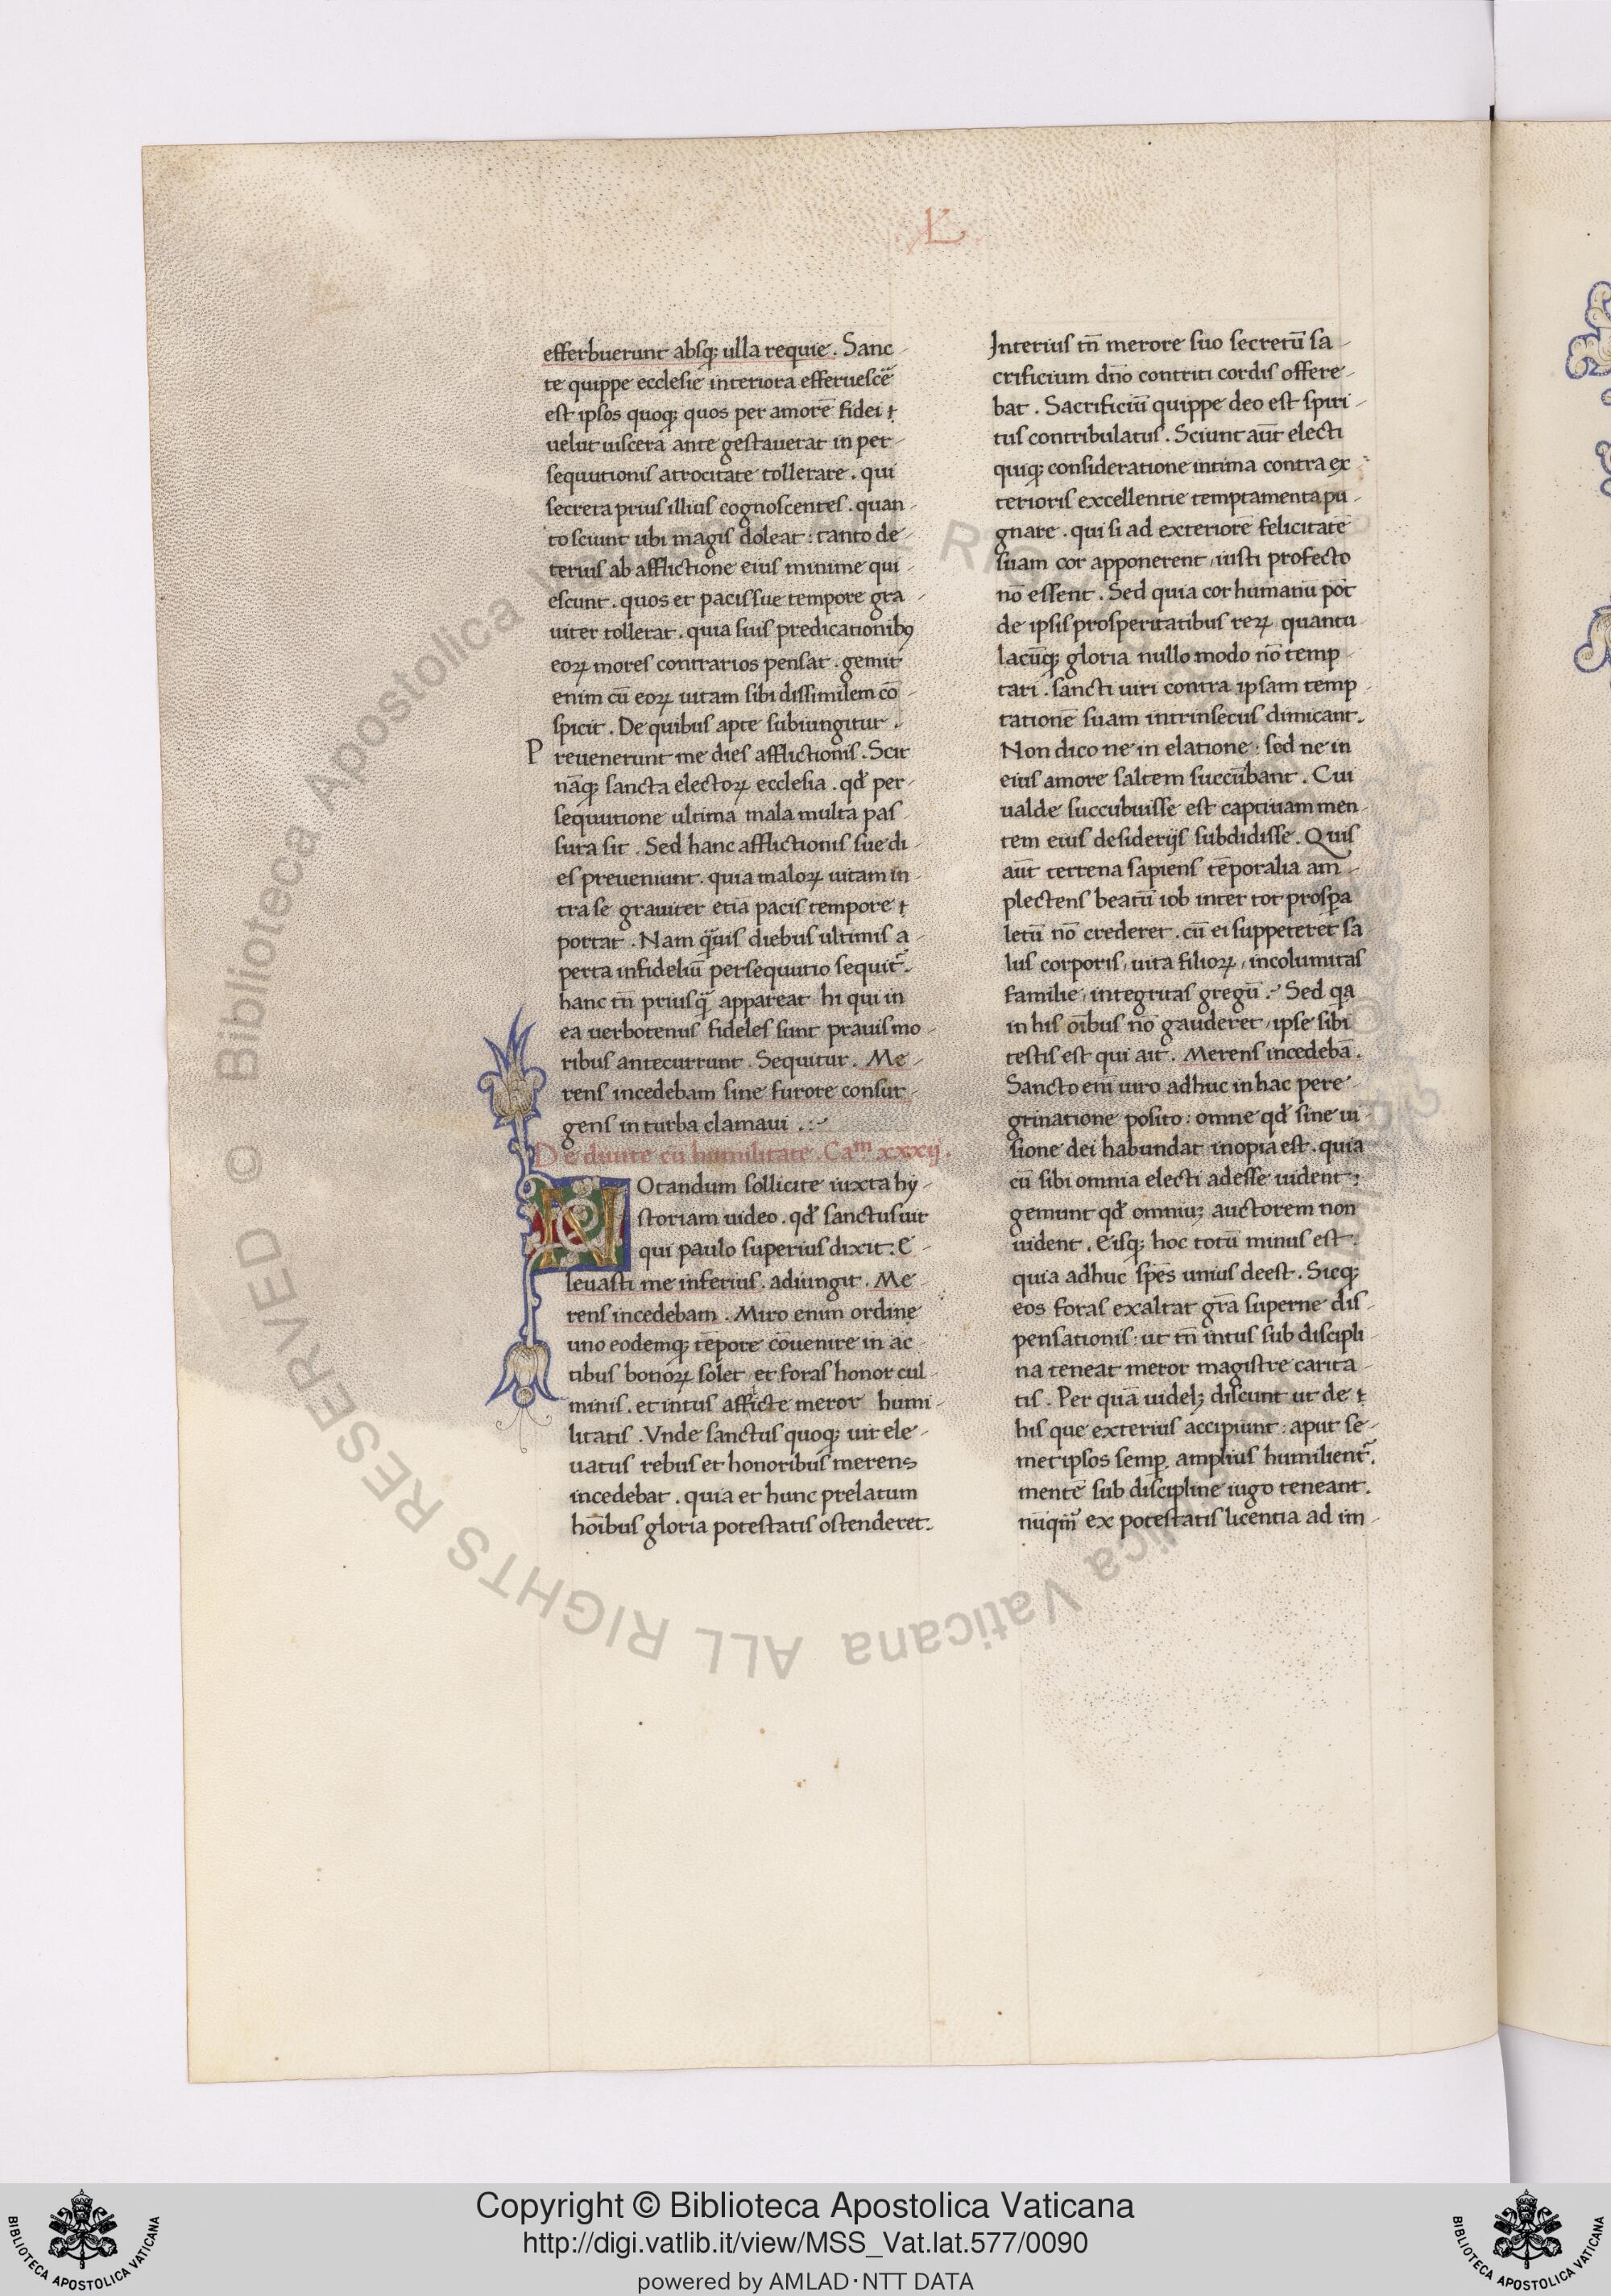 L
efferbuerunt absq; ulla requie. Sanc-
te quippe ecclesie interiora efferuescē
est ipsos quoq; quos per amorē fidei
uelut uiscera ante gestauerat in per-
sequutionis atrocitate tollerare. qui
secreta prius illius cognoscentes. quan-
to sciunt ubi magis doleat: tanto de-
terius ab afflictione eius minime qui-
escunt. quos et pacis sue tempore gra-
uiter tollerat. quia suis predicationibꝯ
eoꝝ mores contrarios pensat. gemit
enim cū eoꝝ uitam sibi dissimilem cō-
spicit. De quibus apte subiungitur.
Preuenerunt me dies afflictionis. Scit
nāq; sancta electoꝝ ecclesia. qđ per-
sequutione ultima mala multa pas-
sura sit. Sed hanc afflictionis sue di-
es preueniunt. quia maloꝝ uitam in-
tra se grauiter etiā pacis tempore
portat. Nam q̄uis diebus ultimis a-
perta infideliū persequutio sequit̄.
hanc tn̄ priusq̄ appareat hi qui in
ea uerbotenus fideles sunt prauis mo-
ribus antecurrunt. Sequitur. Me-
rens incedebam sine furore consur-
gens in turba clamaui.
De diuite cū humilitate. Caᵐ xxxij.
Notandum sollicite iuxta hy-
storiam uideo. qđ sanctus uir
qui paulo superius dixit: E-
leuasti me inferius. adiungit. Me-
rens incedebam. Miro enim ordine
uno eodemq; tēpore cōuenire in ac-
tibus bonoꝝ solet, et foras honor cul-
minis. et intus afflicte meror humi-
litatis. Vnde sanctus quoq; uir ele-
uatus rebus et honoribus merens
incedebat. quia et hunc prelatum
hoībus gloria potestatis ostenderet.
Interius tn̄ merore suo secretū sa-
crificium dn̄o contriti cordis offere-
bat. Sacrificiū quippe deo est spiri-
tus contribulatus. Sciunt aūt electi
quiq; consideratione intima contra ex-
terioris excellentie temptamenta pu-
gnare. qui si ad exteriorē felicitatē
suam cor apponerent, iusti profecto
nō essent. Sed quia cor humanū pōt
de ipsis prosperitatibus reꝝ quantu-
lacūq; gloria nullo modo nō temp-
tari. sancti uiri contra ipsam temp-
tationē suam intrinsecus dimicant.
Non dico ne in elatione: sed ne in
eius amore saltem succūbant. Cui
ualde succubuisse est captiuam men-
tem eius desiderijs subdidisse. Quis
aūt terrena sapiens tēporalia am-
plectens beatū iob inter tot prosꝑa
letū nō crederet. cū ei suppeteret sa-
lus corporis, uita filioꝝ, incolumitas
familie, integritas gregū. Sed qa
in his oībus nō gauderet, ipse sibi
testis est qui ait. Merens incedebā.
Sancto enī uiro adhuc in hac pere-
grinatione posito: omne qđ sine ui-
sione dei habundat inopia est. quia
cū sibi omnia electi adesse uident:
gemunt qđ omniuꝫ auctorem non
uident. Eisq; hoc totū minus est
quia adhuc spēs unius deest. Sicq;
eos foras exaltat gr̄a superne dis-
pensationis: ut tn̄ intus sub discipli-
na teneat meror magistre carita-
tis. Per quā uidelꝫ discunt ut de
his que exterius accipiunt: aput se-
met ipsos semꝑ amplius humilient̄.
mentē sub discipline iugo teneant.
nūqm̄ ex potestatis licentia ad im-
© Biblioteca Apostolica Vaticana ALL RIGHTS RESERVED
Copyright © Biblioteca Apostolica Vaticana
http://digi.vatlib.it/view/MSS_Vat.lat.577/0090
powered by AMLAD·NTT DATA
BIBLIOTECA APOSTOLICA VATICANA
BIBLIOTECA APOSTOLICA VATICANA